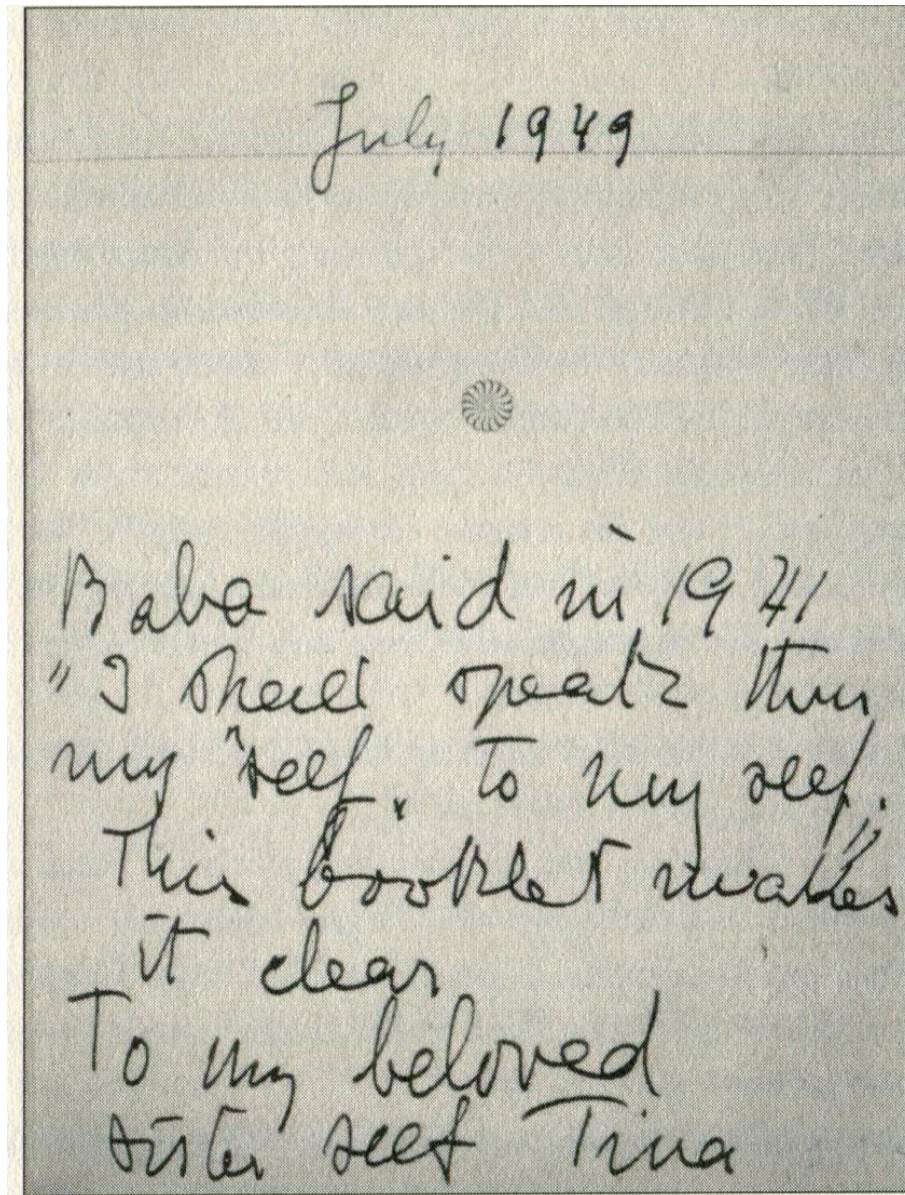 July 1949
Baba said in 1941
"I shall speak thru
my "self" to my self."
This booklet makes
it clear
To my beloved
sister self Tina